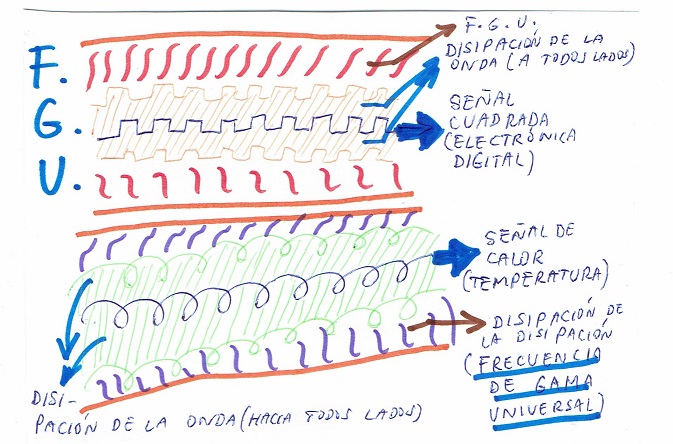 F.
G.
U.
F. G. U.
DISIPACIÓN DE LA
ONDA (A TODOS LADOS)
SEÑAL
CUADRADA
(ELECTRÓNICA
DIGITAL)
SEÑAL DE
CALOR
(TEMPERATURA)
DISIPACIÓN DE
LA DISIPACIÓN
(FRECUENCIA
DE GAMA
UNIVERSAL)
DISI-
PACIÓN DE LA ONDA (HACIA TODOS LADOS)